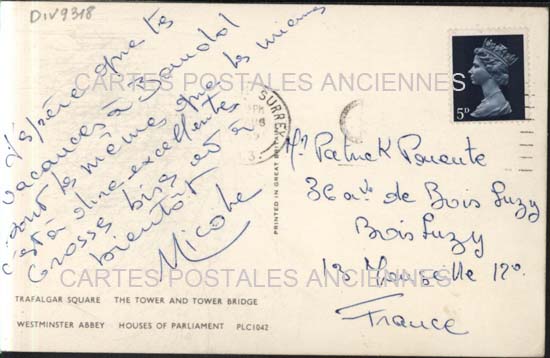 DIV9318
J'espère que tes
vacances à Bandol
sont les mêmes que les miennes
c'est à dire excellentes
Grosses bises et à
bientôt
Nicole
CARTES POSTALES ANCIENNES
SURREY
PM
5D
PRINTED IN GREAT BRITAIN
Mr Patrick
36 av. de Bois Luzy
Bois Luzy
13 Marseille 12o.
France
CARTES POSTALES ANCIENNES
TRAFALGAR SQUARE THE TOWER AND TOWER BRIDGE
WESTMINSTER ABBEY HOUSES OF PARLIAMENT PLC1042